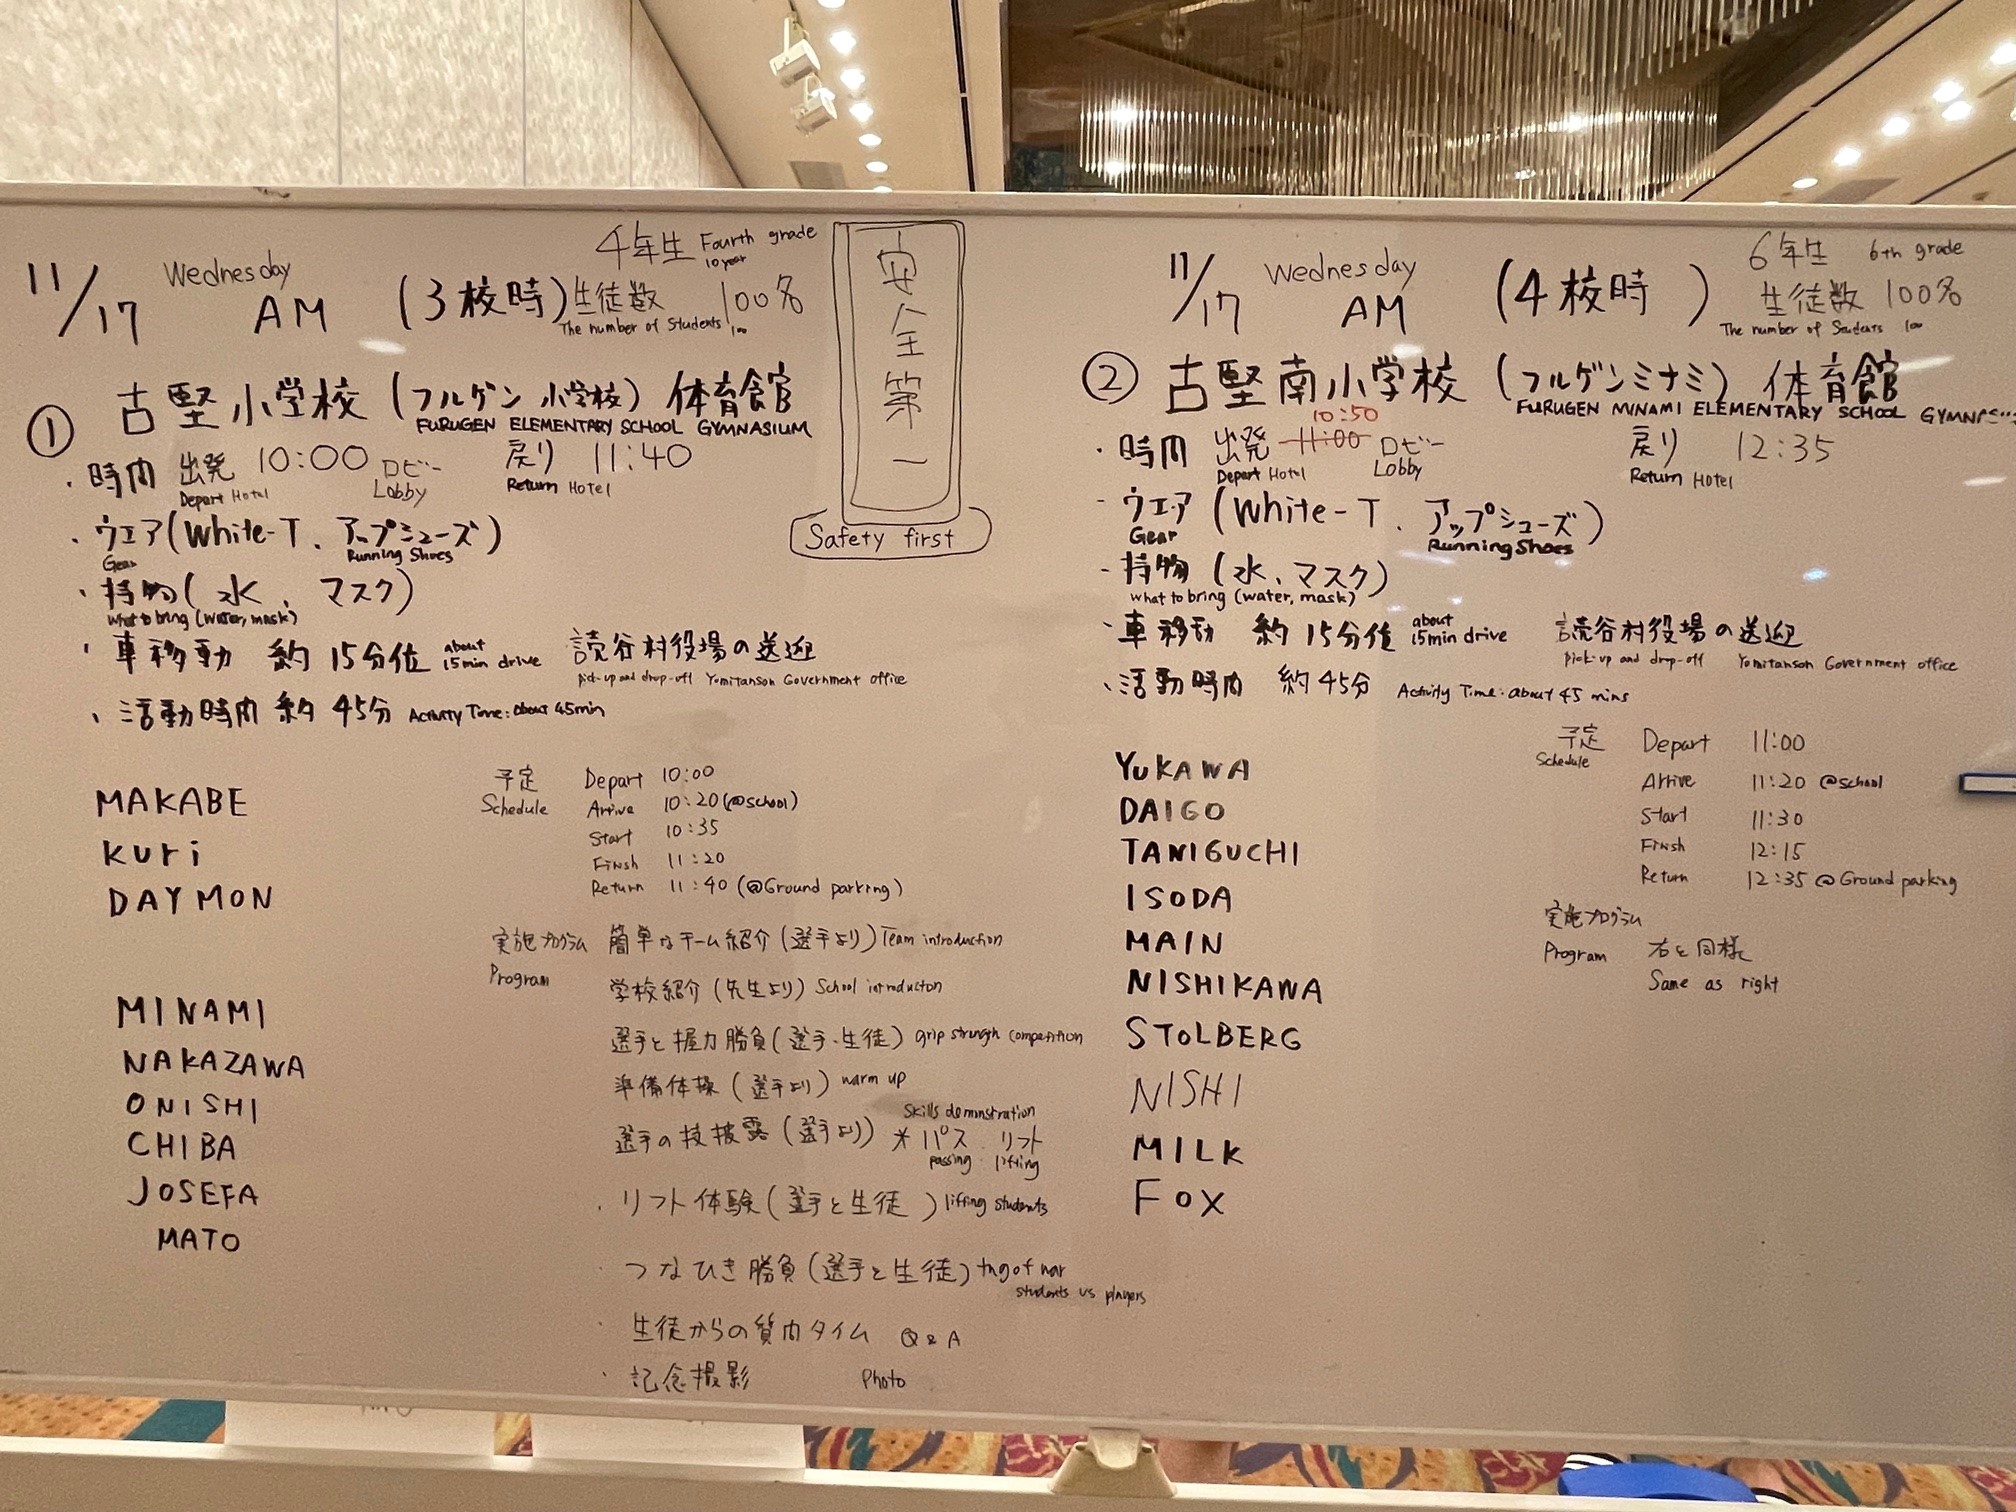 11/17 Wednesday AM (3校時)
4年生 Fourth grade
10 year
生徒数 100名
The number of Students 100
① 古堅小学校 (フルゲン 小学校) 体育館
FURUGEN ELEMENTARY SCHOOL GYMNASIUM
・時間 出発 10:00 ロビー 戻り 11:40
Depart Hotel Lobby Return Hotel
・ウエア (White-T、アップシューズ)
Gear Running Shoes
・持物 (水、マスク)
What to bring (water, mask)
・車移動 約15分位 about 15min drive 読谷村役場の送迎
pick-up and drop-off Yomitanson Government office
・活動時間 約45分 Activity Time: about 45min
MAKABE
Kuri
DAYMON
MINAMI
NAKAZAWA
ONISHI
CHIBA
JOSEFA
MATO
予定 Depart 10:00
Schedule Arrive 10:20 (@school)
Start 10:35
Finish 11:20
Return 11:40 (@Ground parking)
実施プログラム 簡単なチーム紹介 (選手より) Team introduction
Program 学校紹介 (先生より) School introducton
選手と握力勝負 (選手・生徒) grip strength competition
準備体操 (選手より) warm up
Skills demonstration
選手の技披露 (選手より) *パス リフト
passing lifting
・リフト体験 (選手と生徒 ) lifting students
・つなひき勝負 (選手と生徒) tug of war
students vs players
・生徒からの質問タイム Q & A
・記念撮影 Photo
安全第一
Safety first
11/17 Wednesday AM (4校時 )
6年生 6th grade
生徒数 100名
The number of Students 100
② 古堅南小学校 (フルゲンミナミ) 体育館
FURUGEN MINAMI ELEMENTARY SCHOOL
10:50
・時間 出発 11:00 ロビー 戻り 12:35
Depart Hotel Lobby Return Hotel
・ウエア (White-T、アップシューズ)
Gear Running Shoes
・持物 (水、マスク)
What to bring (water, mask)
・車移動 約15分位 about 15min drive 読谷村役場の送迎
pick-up and drop-off Yomitanson Government office
・活動時間 約45分 Activity Time: about 45 mins
YUKAWA
DAIGO
TANIGUCHI
ISODA
MAIN
NISHIKAWA
STOLBERG
NISHI
MILK
FOX
予定 Depart 11:00
Schedule Arrive 11:20 @school
Start 11:30
Finish 12:15
Return 12:35 @Ground parking
実施プログラム
Program 右と同様
Same as right